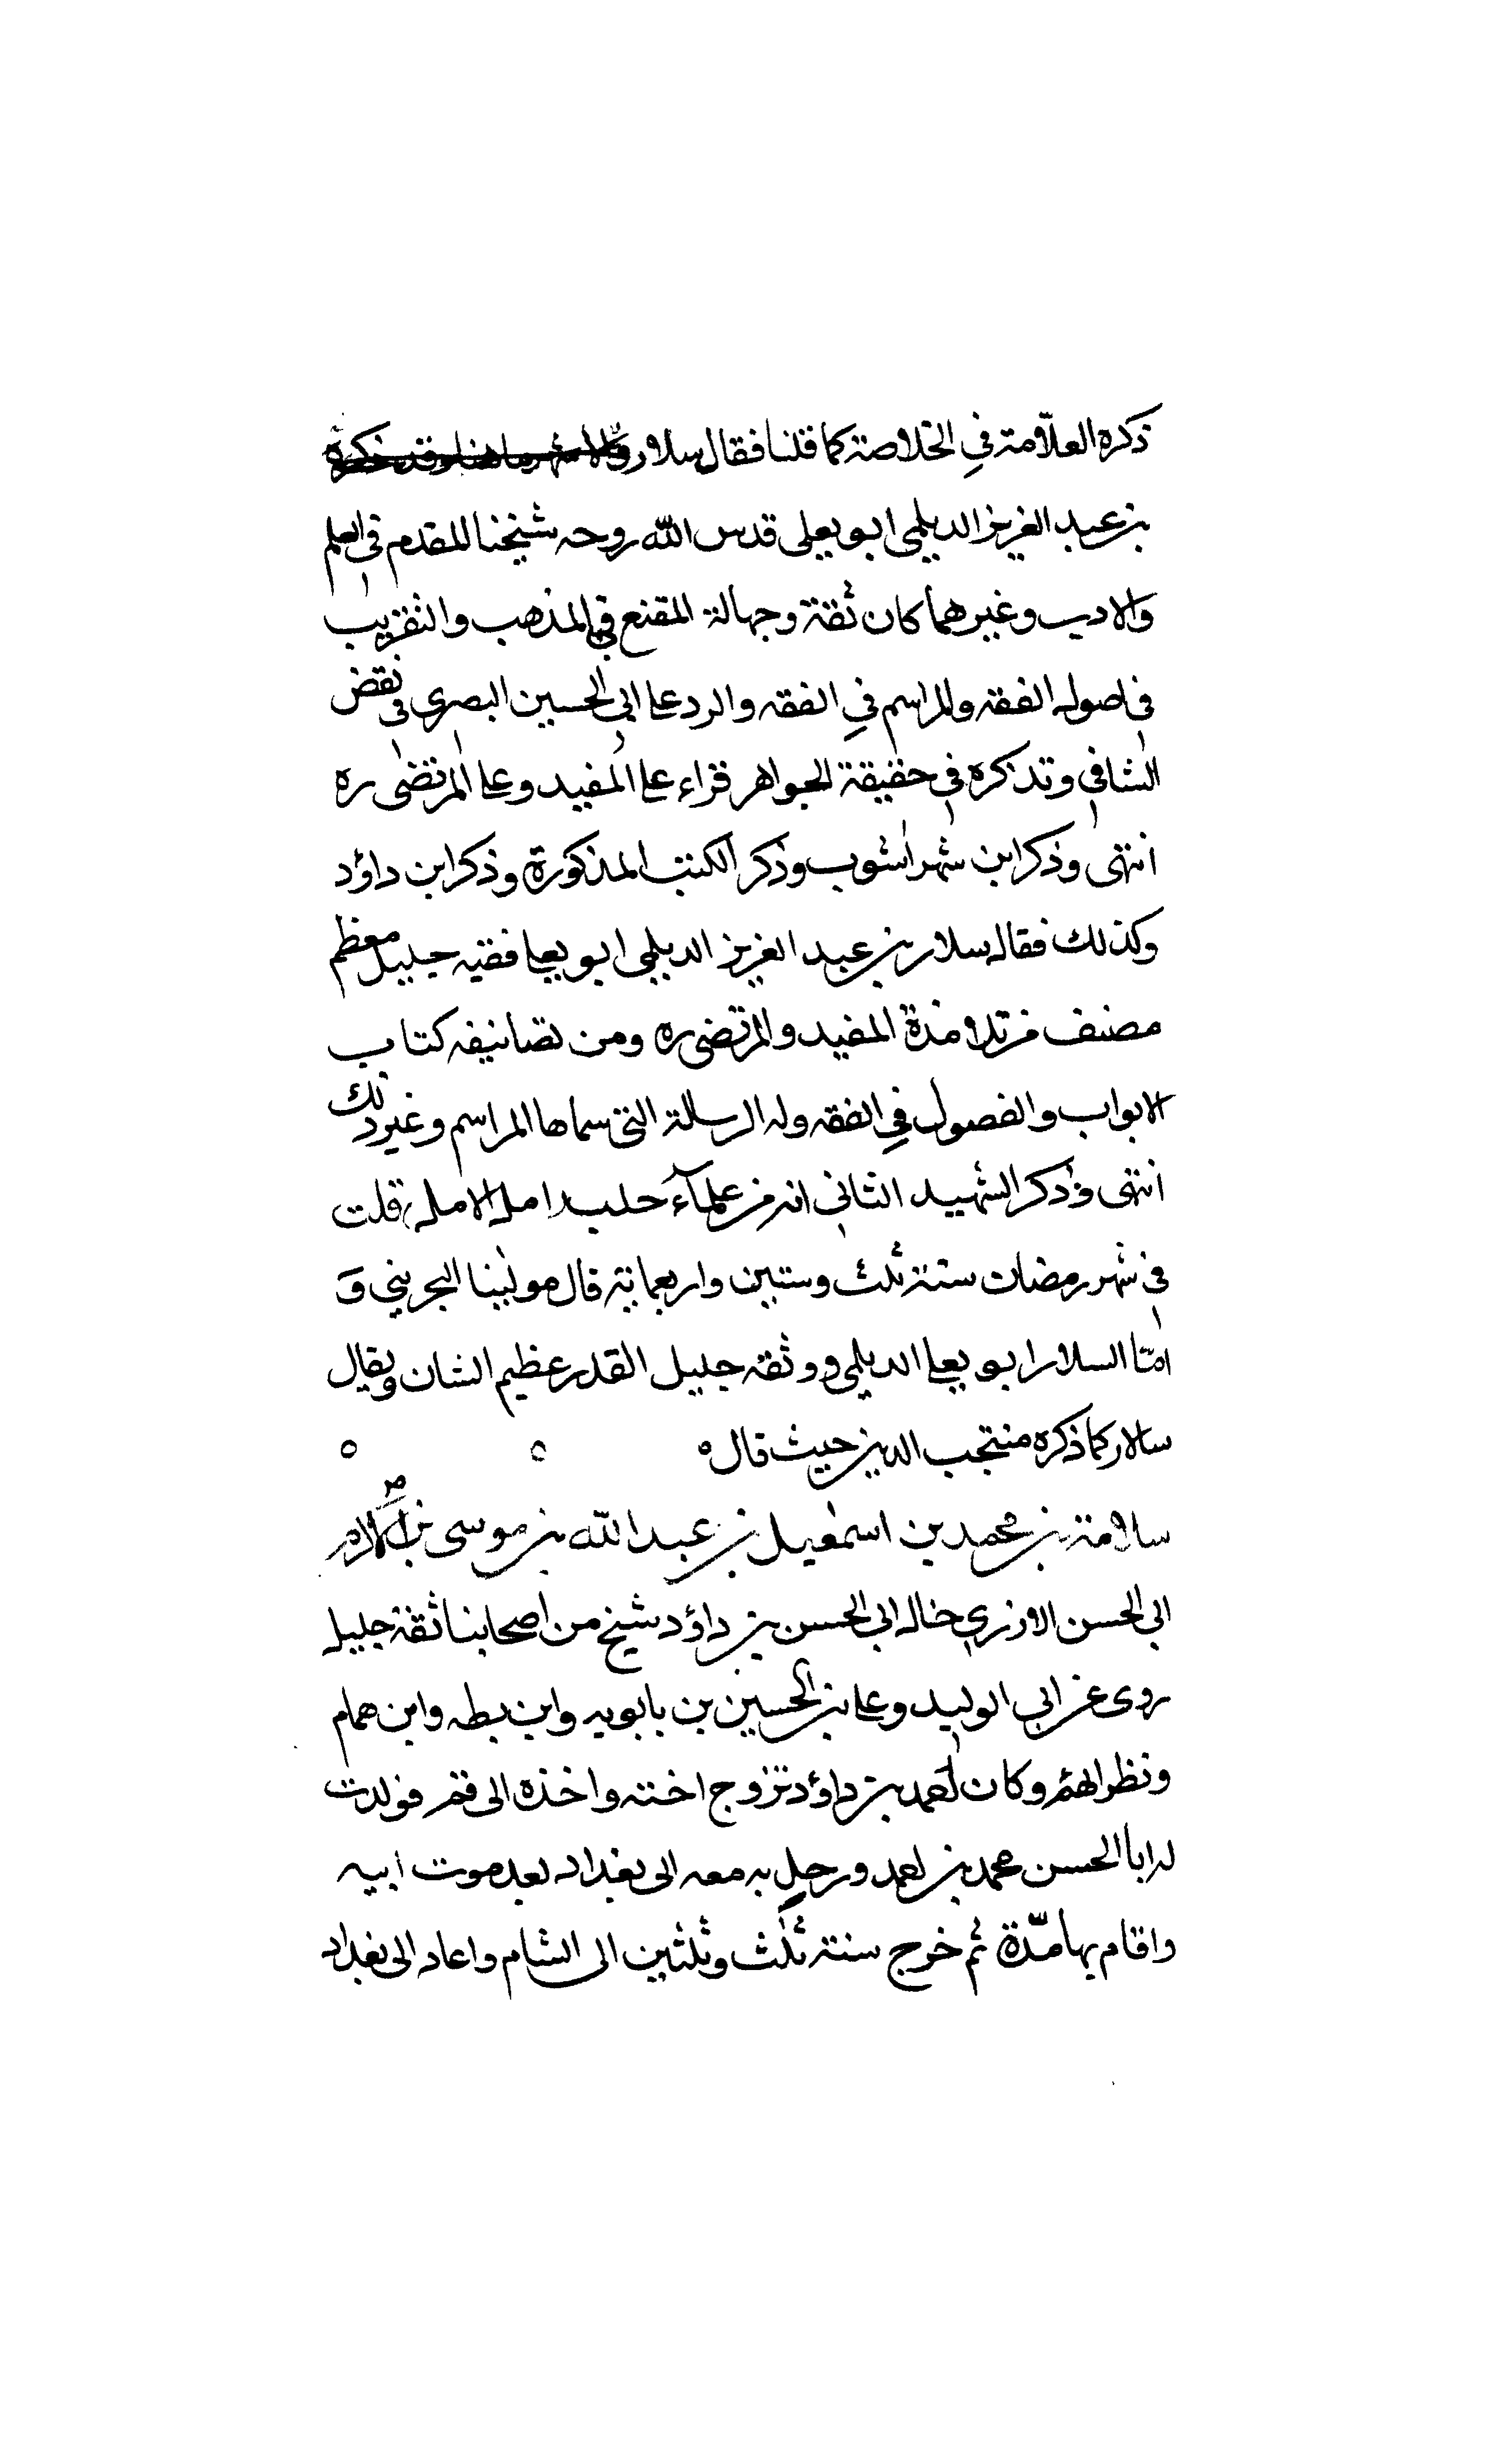 ذكره العلّامة في الخلاصة كما قلنا فقال سلار والاشهر ما هنا وقد ذكره
بن عبد العزيز الديلمي ابو يعلى قدس الله روحه شيخنا المقدم في العلم
والادب وغيرهما كان ثقة وجها له المقنع في المذهب والتقريب
في اصول الفقه والمراسم في الفقه والرد على ابي الحسين البصري في نقض
الشافي وتذكره في حقيقة الجواهر قراء على المفيد وعلى المرتضى ره
انتهى وذكر ابن شهراشوب وذكر الكتب المذكورة وذكر ابن داؤد
وكذلك فقال سلار بن عبد العزيز الديلمي ابو يعلى فقيه جليل معظم
مصنف من تلامذة المفيد والمرتضى ره ومن تصانيفه كتاب
الابواب والفصول في الفقه وله الرسالة التي سماها المراسم وغير ذلك
انتهى وذكر الشهيد الثاني انه من علمآء حلب امل الامل قلت
في شهر رمضان سنة ثلث وستين واربعماية قال مولينا البحريني وَ
امّا السلار ابو يعلى الديلمي وثقه جليل القدر عظيم الشان ويقال
سالار كما ذكره منتجب الدين حيث قال ه ه ه
سلامة بن محمد بن اسمعيل بن عبد الله بن موسى بن ابي الاكرم
ابي الحسن الاوزري خال ابي الحسن بن داؤد شيخ من اصحابنا ثقة جليل
روى عن ابي الوليد وعلى بن الحسين بن بابويه وابن بطه وابن همام
ونظرائهم وكان احمد بن داؤد تزوج اخته واخذه الى قم فولدت
له ابا الحسن محمد بن احمد ورحل به معه الى بغداد بعد موت ابيه
واقام بها مدّة ثم خرج سنة ثلث وثلثين الى الشام واعاد الى بغداد